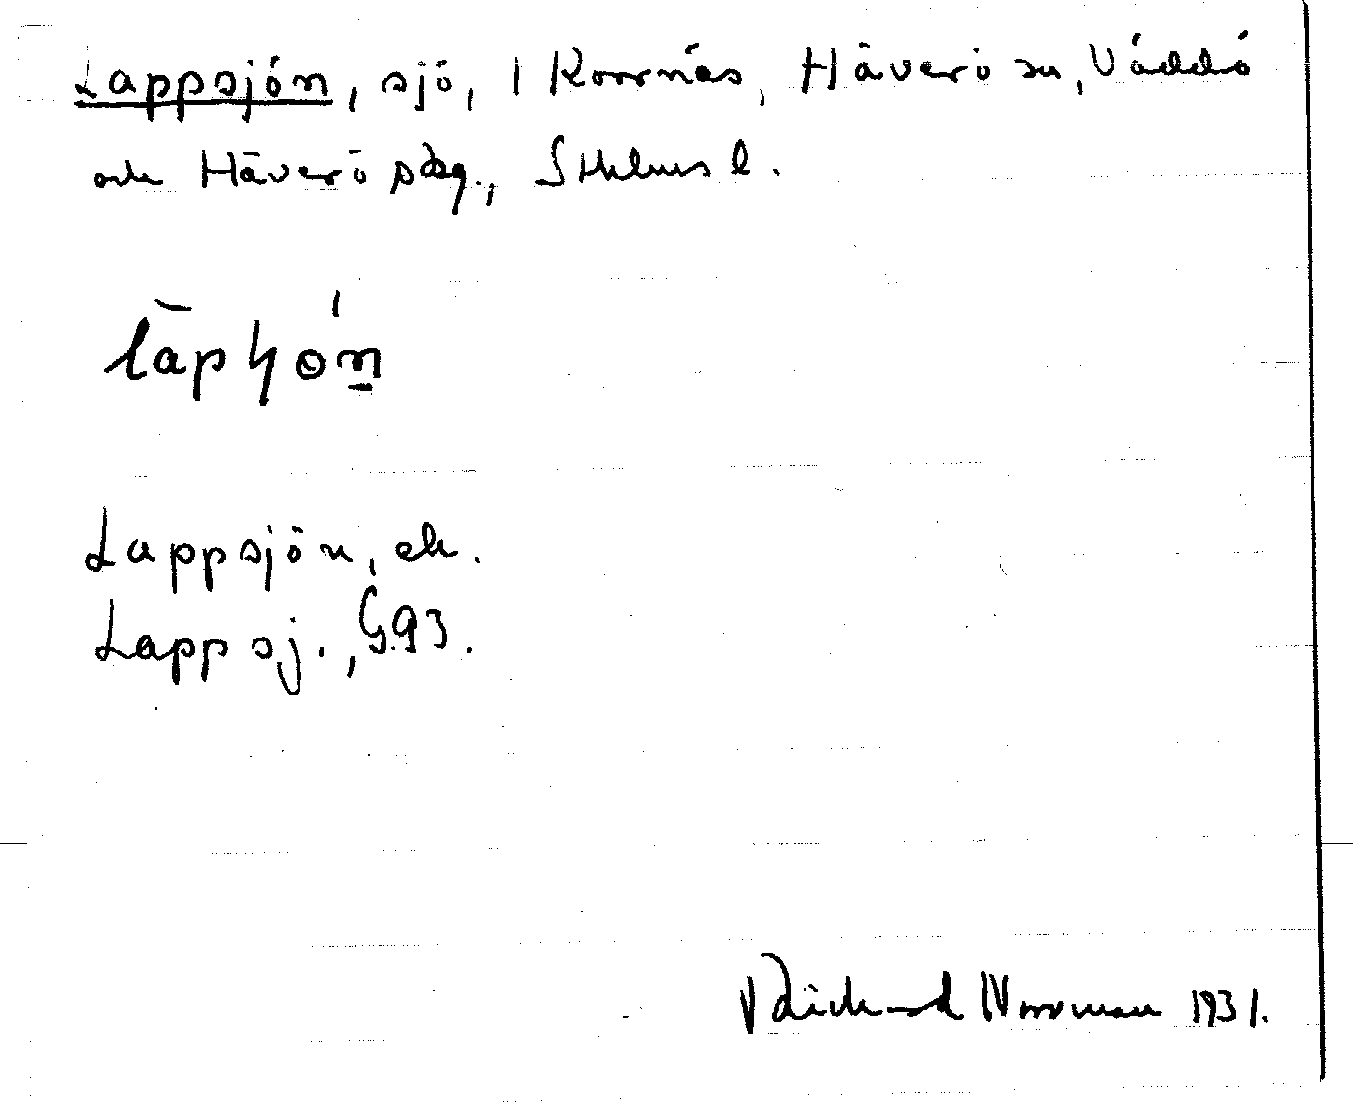 Lappsjön, sjö, i Kornäs, Häverö sn, Väddö
och Häverö sdg., Sthlms l.
Lappsjön, ek.
Lappsj., G.93.
Richard Norrman 1931.